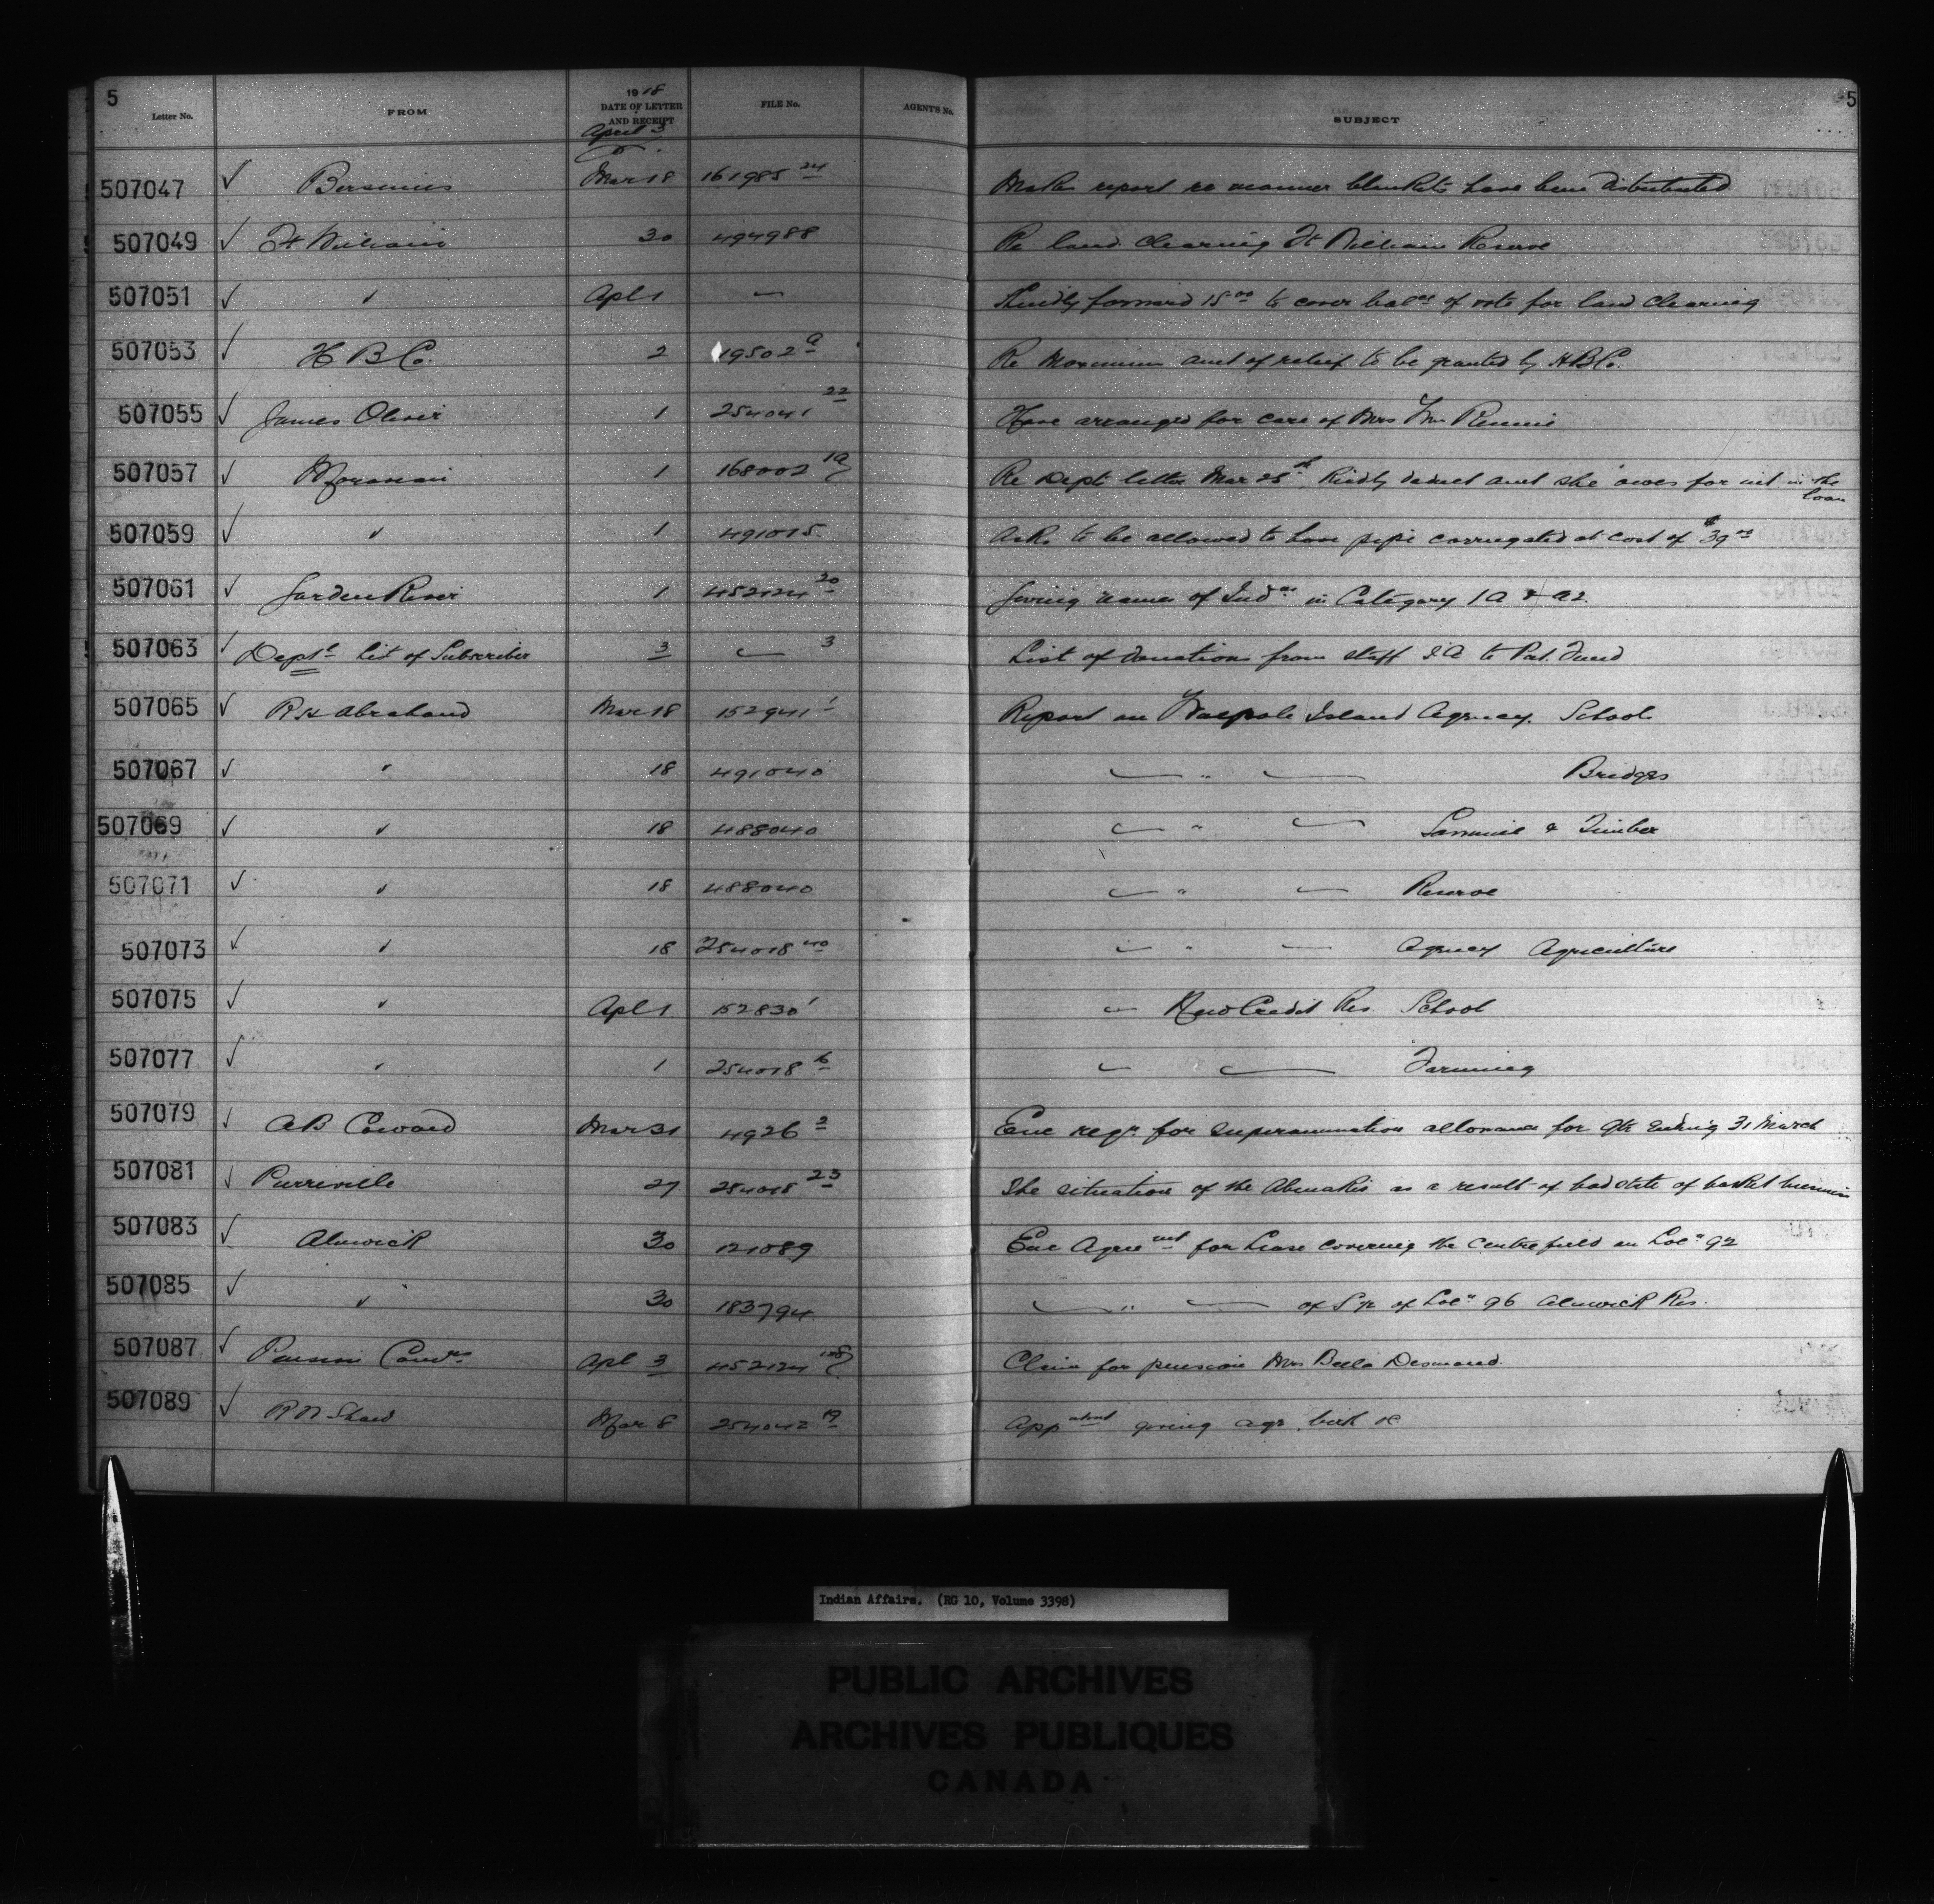 5 5
1918
Letter No. FROM DATE OF LETTER AND RECEIPT FILE No. AGENT'S No. SUBJECT
April 3
507047 ✓ Bersimis Mar 18 161985 24 Makes report re manner blankets have been distributed
507049 ✓ Ft William 30 494988 Re land clearing Ft William Reserve
507051 ✓ " Apl 1 — Kindly forward 15 00 to cover balce of vote for land clearing
507053 ✓ H B Co. 2 19502 a Re Maximum amt of relief to be granted by H B Co.
507055 ✓ James Oliver 1 254041 22 Have arranged for care of Mrs Wm Rennie
507057 ✓ Moravian 1 168002 1a Re Dept letter Mar 25th Kindly deduct amt she owes for int in the loan
507059 ✓ " 1 491015 Asks to be allowed to have pipe corrugated at cost of $39 00
507061 ✓ Garden River 1 452124 20 Giving names of Inds in Category 1A & A2.
507063 ✓ Deptl List of Subscriber 3 — 3 List of donations from staff I A to Pat. Fund
507065 ✓ R H Abraham Mar 18 152941 1 Report on Walpole Island Agency. School
507067 ✓ " 18 491040 — " — Bridges
507069 ✓ " 18 488040 — " — & Timber
507071 ✓ " 18 488040 — " — Reserve
507073 ✓ " 18 254018 40 — " — Agency Agriculture
507075 ✓ " Apl 1 152830 1 — New Credit Res. School
507077 ✓ " 1 254018 6 — — Farming
507079 ✓ A B Coward Mar 31 4926 2 Enc reqn for superannuation allowance for qtr ending 31 March
507081 ✓ Pierreville 27 254018 23 The situation of the Abenakis as a result of bad state of basket business
507083 ✓ Alnwick 30 121089 Enc Agreemt for Lease covering the centre field on Locn 92
507085 ✓ " 30 183794 — " — of S pt of Locn 96 Alnwick Res.
507087 ✓ Pension Comrs Apl 3 452124 Claim for pension Mrs Bella Desmond.
507089 ✓ R N Shaw Mar 8 254042 19 giving age birth &c
Indian Affairs. (RG 10, Volume 3398)
PUBLIC ARCHIVES
ARCHIVES PUBLIQUES
CANADA